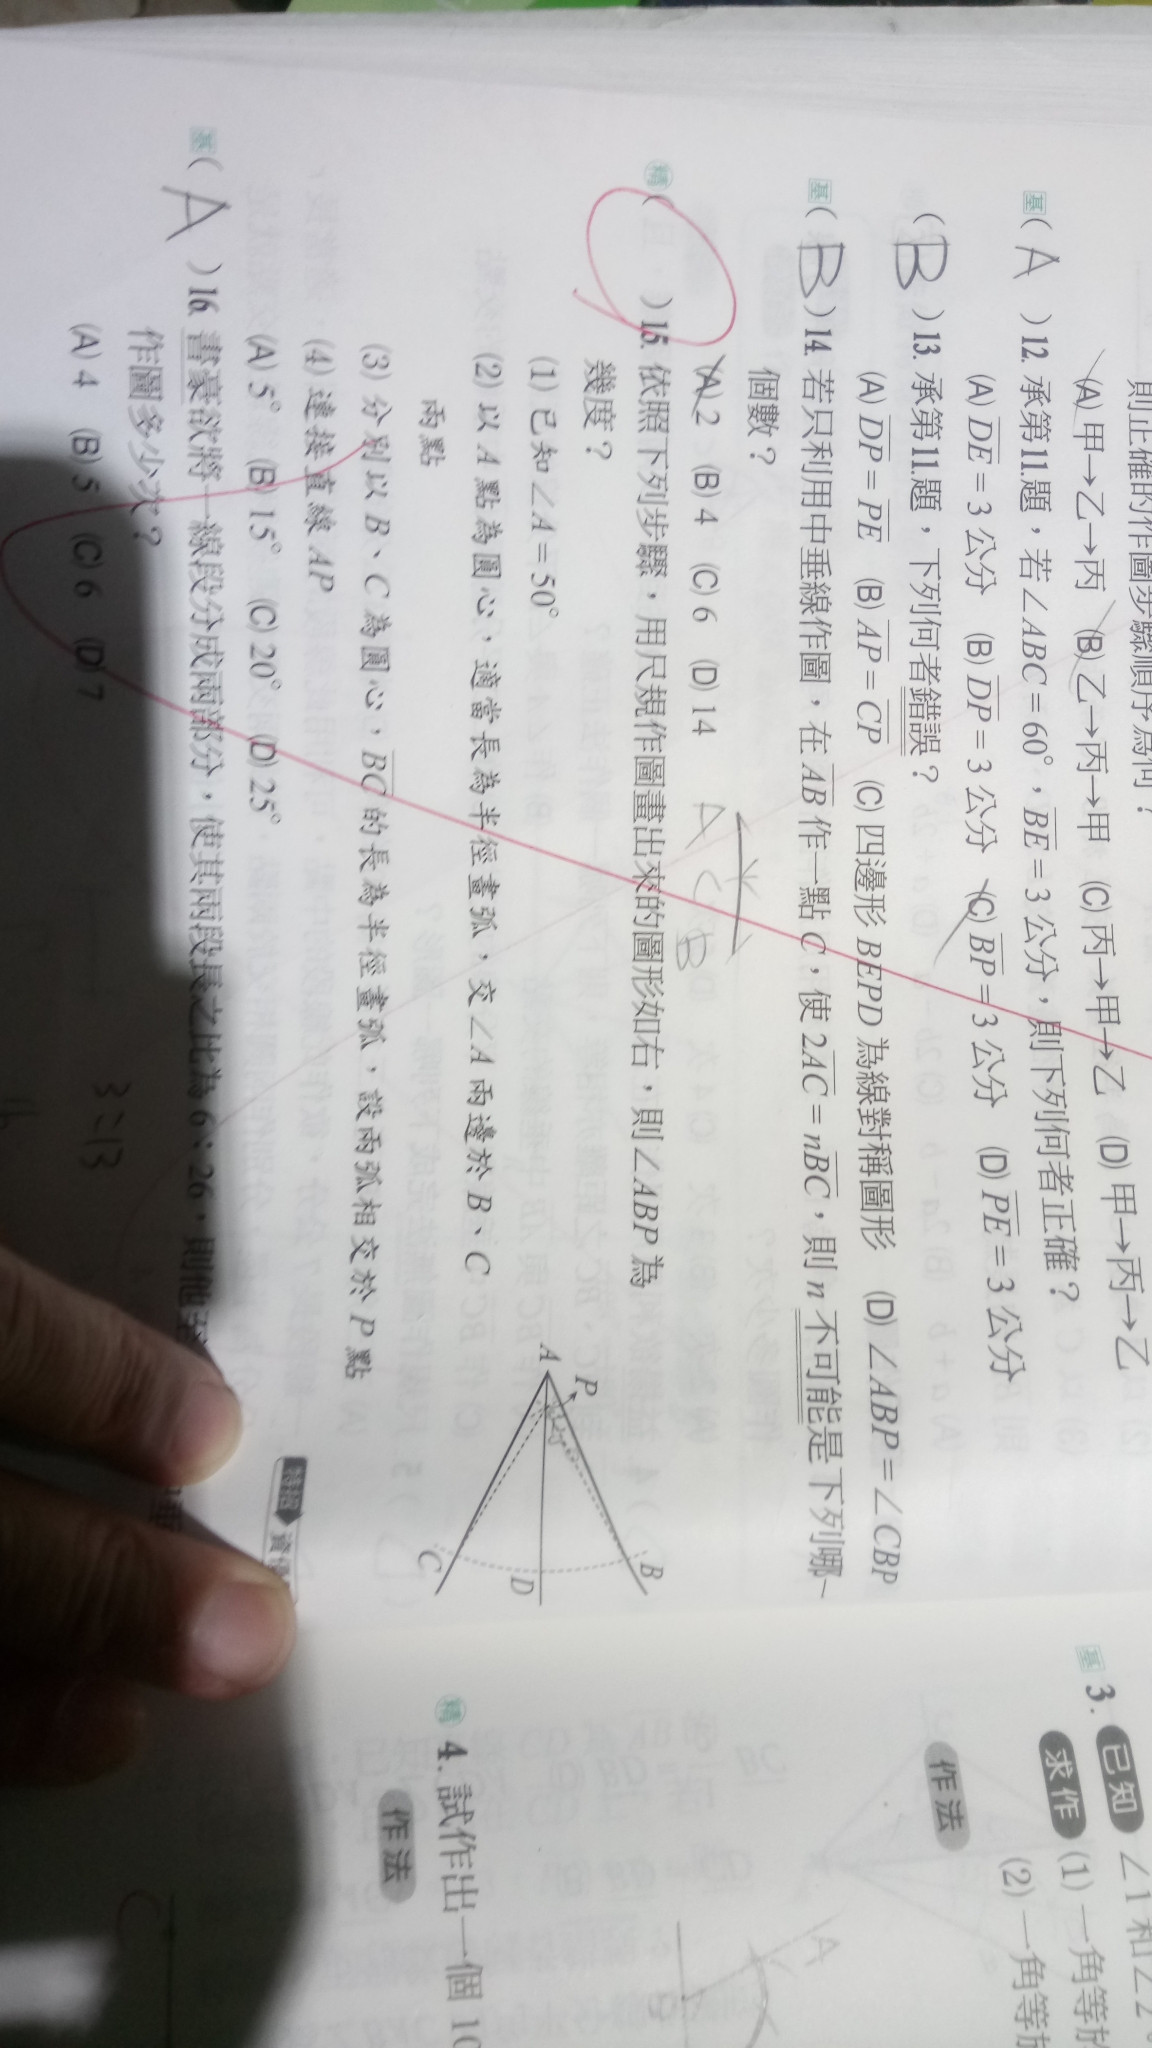 則正確的作圖步驟順序為何？
(A) 甲→乙→丙 (B) 乙→丙→甲 (C) 丙→甲→乙 (D) 甲→丙→乙
基( A )12. 承第11.題，若∠ABC=60°，BE=3公分，則下列何者正確？
(A) DE=3公分 (B) DP=3公分 (C) BP=3公分 (D) PE=3公分
( B )13. 承第11.題，下列何者錯誤？
(A) DP=PE (B) AP=CP (C) 四邊形BEPD為線對稱圖形 (D) ∠ABP=∠CBP
基( B )14. 若只利用中垂線作圖，在AB作一點C，使2AC=nBC，則n不可能是下列哪一
個數？
(A) 2 (B) 4 (C) 6 (D) 14
A C B
精( )15. 依照下列步驟，用尺規作圖畫出來的圖形如右，則∠ABP為
幾度？
(1) 已知∠A=50°
(2) 以A點為圓心，適當長為半徑畫弧，交∠A兩邊於B、C
兩點
(3) 分別以B、C為圓心，BC的長為半徑畫弧，設兩弧相交於P點
(4) 連接直線AP
(A) 5° (B) 15° (C) 20° (D) 25°
A
P
B
D
C
基( A )16. 書豪欲將一線段分成兩部分，使其兩段長之比為6：26，則他至
作圖多少次？
(A) 4 (B) 5 (C) 6 (D) 7
3:13
特招
基 3. 已知 ∠1和∠2
求作 (1) 一角等於
(2) 一角等於
作法
精 4. 試作出一個10
作法
A
C